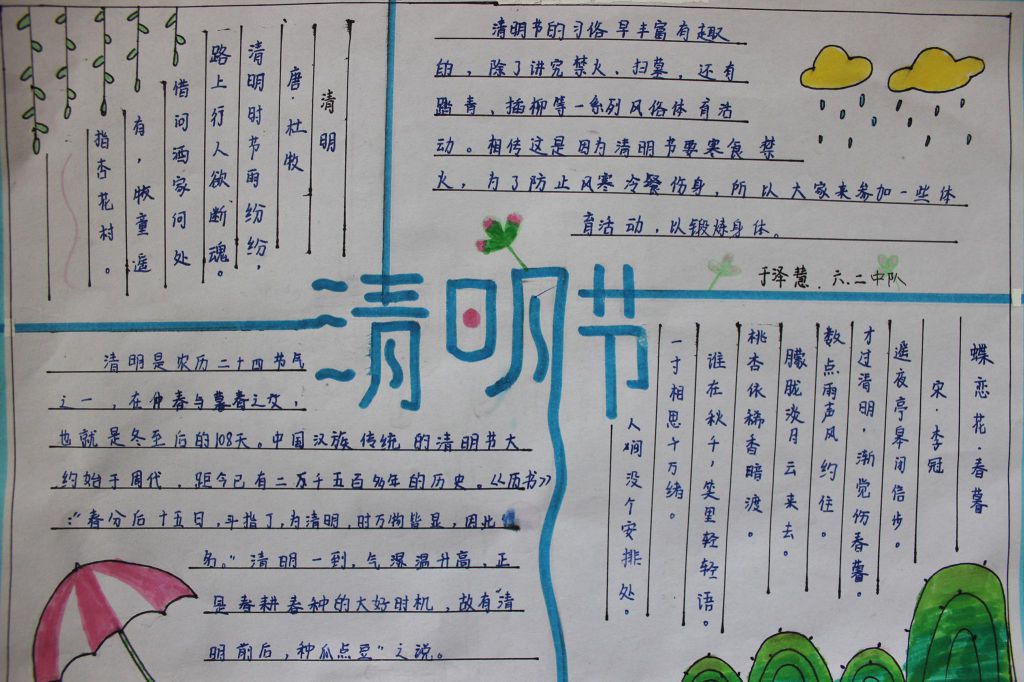 清明
唐·杜牧
清明时节雨纷纷，
路上行人欲断魂。
借问酒家何处
有，牧童遥
指杏花村。
清明节的习俗早丰富有趣
的，除了讲究禁火、扫墓，还有
踏青、插柳等一系列风俗体育活
动。相传这是因为清明节要寒食禁
火，为了防止风寒冷餐伤身，所以大家来参加一些体
育活动，以锻炼身体。
于泽慧.六.二中队
清明节
清明是农历二十四节气
之一，在仲春与暮春之交，
也就是冬至后的108天。中国汉族传统的清明节大
约始于周代，距今已有二万千五百多年的历史。《历书》
:"春分后十五日，斗指丁，为清明，时万物皆显，因此
名。"清明一到，气温升高，正
是春耕春种的大好时机，故有"清
明前后，种瓜点豆"之说。
蝶恋花·春暮
宋·李冠
遥夜亭皋闲信步。
才过清明，渐觉伤春暮。
数点雨声风约住。
朦胧淡月云来去。
桃杏依稀香暗渡。
谁在秋千，笑里轻轻语。
一寸相思千万绪。
人间没个安排处。